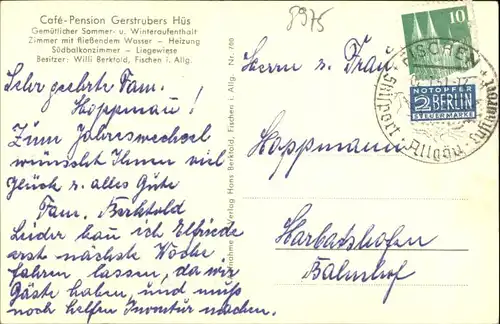 Café-Pension Gerstrubers Hüs
Gemütlicher Sommer- u. Winteraufenthalt
Zimmer mit fließendem Wasser – Heizung
Südbalkonzimmer – Liegewiese
Besitzer: Willi Berktold, Fischen i. Allg.
8975
Sehr geehrte Fam.
Hoppmann!
Zum Jahreswechsel
wünscht Ihnen viel
Glück u. alles Gute
Fam. Berktold
Leider kau ich Elfriede
erst nächste Woche
fahren lassen, da wir
Gäste haben, und muß
noch helfen Inventur machen.
Verlag Hans Berktold, Fischen i. Allg. Nr. 766
10
FISCHEN
NOTOPFER
2 BERLIN
STEUERMARKE
Skisport
Allgäu
Herrn u. Frau
Hoppmann
Harbatshofen
Bahnhof